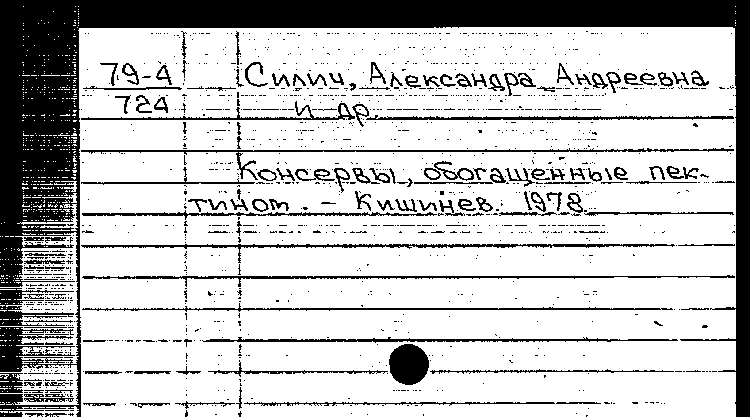 79-4 Силич, Александра Андреевна
724 и др
Консервы, обогащенные пек-
тином. - Кишинев. 1978